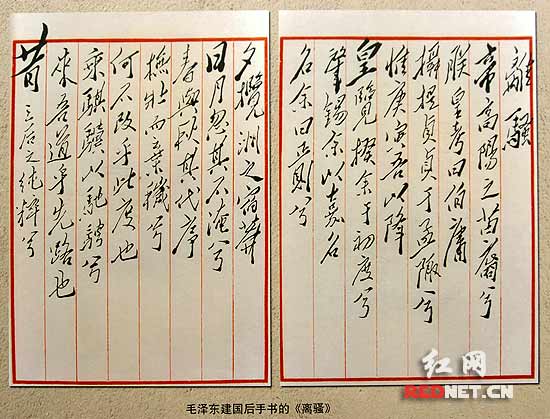 離騷
帝高陽之苗裔兮
朕皇考曰伯庸
攝提貞貞于孟陬兮
惟庚寅吾以降
皇覽揆余于初度兮
肇錫余以嘉名
名余曰正則兮
夕攬洲之宿莽
日月忽其不淹兮
春與秋其代序
撫壯而棄穢兮
何不改乎此度也
乘騏驥以馳騁兮
來吾道乎先路也
昔三后之純粹兮
毛泽东建国后手书的《离骚》
红网
REDNET.CN